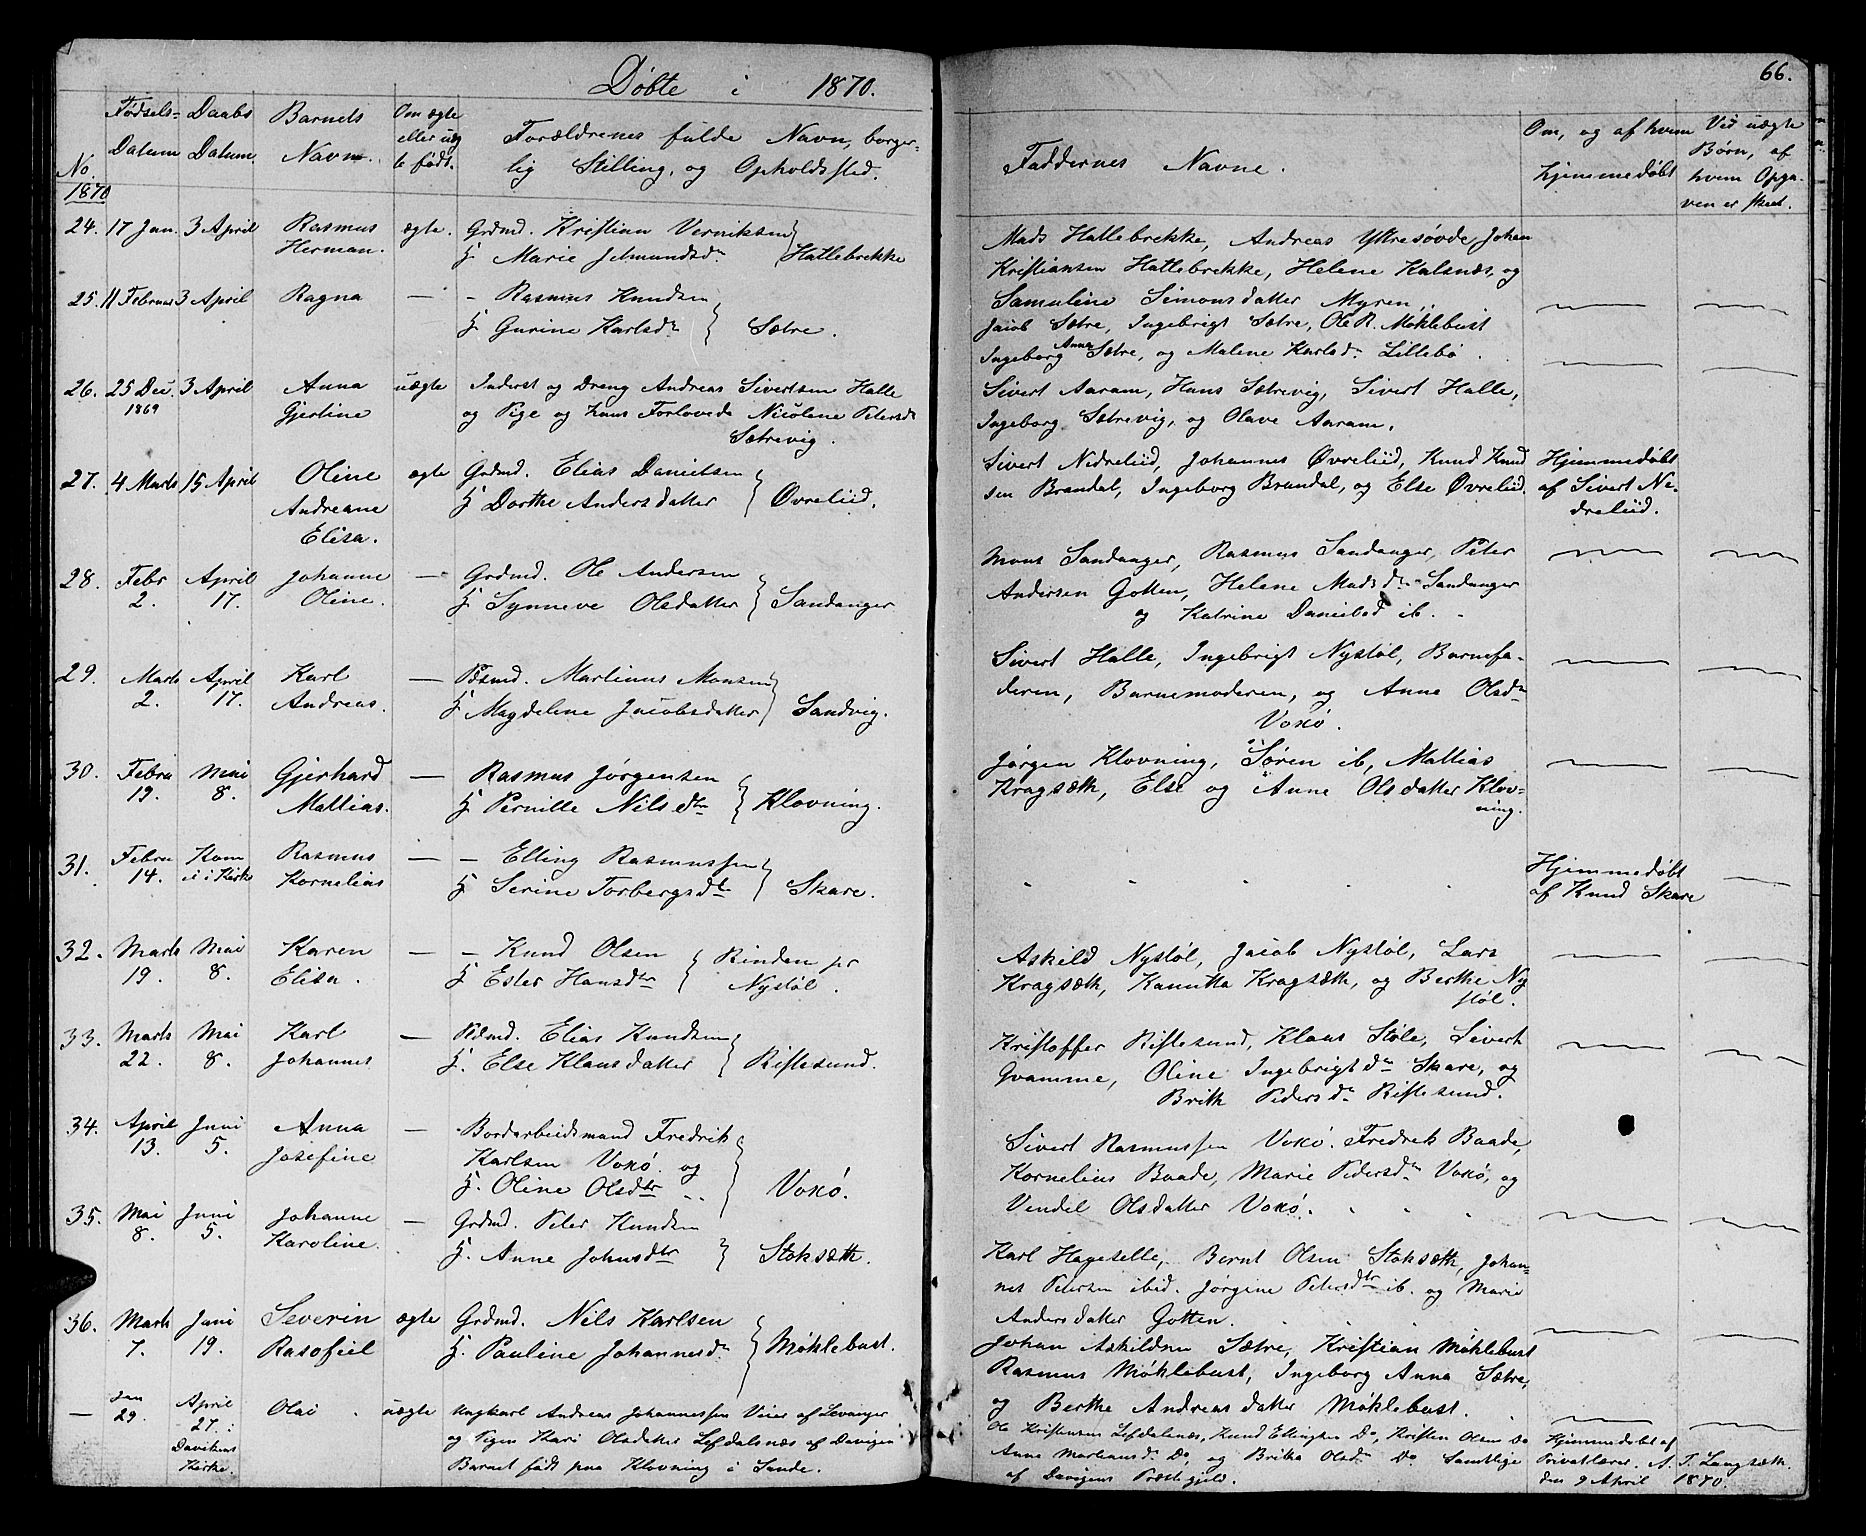 Døbte i 1870.
66.
No. Fødsels-Datum Daabs Datum Barnets Navn. Om ægte eller uægte født. Forældrenes fulde Navn, borgerlig Stilling, og Opholdssted. Faddernes Navne. Om, og af hvem hjemmedøbt Ved uægte Børn, af hvem Opgaven er skeet.
1870
24. 17 Jan. 3 April Rasmus ægte. Grdmd. Kristian Verniksen
Herman. H. Marie Jetmundsdr Hatlebrekke
Mads Hatlebrekke, Andreas Yttresøvde Johan
Kristiansen Hatlebrekke, Helene Kalsnæs, og
Samuline Simonsdatter Myren.
25. 11 Februar 3 April Ragna — - Rasmus Knudsen
H. Gurine Karlsdr Sætre.
Jacob Sætre, Ingebrigt Sætre, Ole R. Møklebust
Ingeborg Anna Sætre, og Malene Karlsdr Lillebø
26. 25 Dec. 3 April Anna uægte Inderst og Dreng Andreas Sivertsen Halle
1869 Gjertine og Pige og hans Forlovede Nicoline Petersdr
Sætrevig.
Sivert Aaram, Hans Sætrevig, Sivert Halle,
Ingeborg Sætrevig, og Olave Aaram.
27. 4 Marts 15 April Oline ægte Grdmd. Elias Danielsen
Andreane H. Dorthe Andersdatter Øvreliid.
Elisa.
Sivert Nedreliid, Johannes Øvreliid, Knud Knud
sen Brandal, Ingeborg Brandal, og Else Øvreliid.
Hjemmedøbt
af Sivert Ne-
dreliid.
28. Febr April Johanne — Grdmd. Ole Andersen
2. 17. Oline. H. Synneve Olsdatter Sandanger
Mons Sandanger, Rasmus Sandanger, Peter
Andersen Gotten, Helene Madsdr Sandanger
og Katrine ib.
29. Marts April Karl — Martinus Monsen
2. 17. Andreas. H. Magdelene Jacobsdatter Sandvig.
Sivert Halle, Ingebrigt Nystøl, Barnefa-
deren, Barnemoderen, og Anna Olsdr
Voxø.
30. Febru Mai Gjerhard — - Rasmus Jørgensen
19. 8. Mattias. H. Pernille Nilsdtr Klovning.
Jørgen Klovning, Søren ib, Mattias
Kragsæth, Else og Anne Olsdatter Klov-
ning.
31. Febru Kom Rasmus — - Elling Rasmussen
14. ei i Kirke Kornelius H. Serine Torbergsdtr Skare.
Hjemmedøbt
af Knud Skare
32. Marts Mai Karen — - Knud Olsen Rinden pr
19. 8. Elisa. H. Ester Hansdtr Nystøl.
Askild Nystøl, Jacob Nystøl, Lars
Kragsæth, Kanutta Kragsæth, og Berthe Ny
støl.
33. Marts Mai Karl — Elias Knudsen
22. 8. Johannes H. Else Klausdatter Riftesund.
Kristoffer Riftesund, Klaus Støle, Sivert
Gvamme, Oline Ingebrigtdr Skare, og
Brith Pedersdr Riftesund.
34. April Juni Anna — Bordarbeidsmand Fredrik
13. 5. Josefine Karlsen Voxø. og
H. Oline Olsdtr Voxø.
Sivert Rasmussen Voxø. Fredrik Baade,
Kornelius Baade, Marie Pedersdr Voxø, og
Vendel Olsdatter Voxø.
35. Mai Juni Johanne — Grdmd. Peter Knudsen
8. 5. Karoline. H. Anne Johnsdtr Stoksæth.
Karl Hageselle, Bernt Olsen Stoksæth, Johan-
nes Petersen ibid. Jørgine Petersdtr ib. og Marie
Andersdatter Gotten.
36. Marts Juni Severin ægte Grdmd. Nils Karlsen
7. 19. Rasofiel H. Pauline Johannesdr Møklebust.
Johan Askildsen Sætre, Kristian Møklebust
Rasmus Møklebust, Ingeborg Anna Sætre,
og Berthe Andreasdatter Møklebust.
— Jan 29. April 27. i Davikens Kirke. Olai uægte Ungkarl Andreas Johannessen Veier af Levanger
og Pigen Kari Olsdatter Lefdalsnæs af Davigen
Barnet født paa Klovning i Sande.
Ole Kristensen Lefdalsnæs, Knud Ellingsen Do, Kristen Olsen Do
Anne Do, og Britha Olsdr Do Samtlige
af Davigens Præstegjeld.
Hjemmedøbt af
Privatlærer A. T. Langsæth
den 9 April 1870.